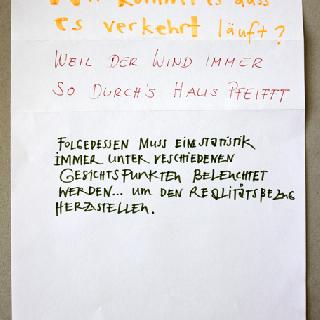 kommt es dass
es verkehrt läuft?
WEIL DER WIND IMMER
SO DURCH'S HAUS PFEIFFT
FOLGEDESSEN MUSS EINE STATISTIK
IMMER UNTER VESCHIEDENEN
GESICHTSPUNKTEN BELEUCHTET
WERDEN... UM DEN REALITÄTSBEZUG
HERZUSTELLEN.